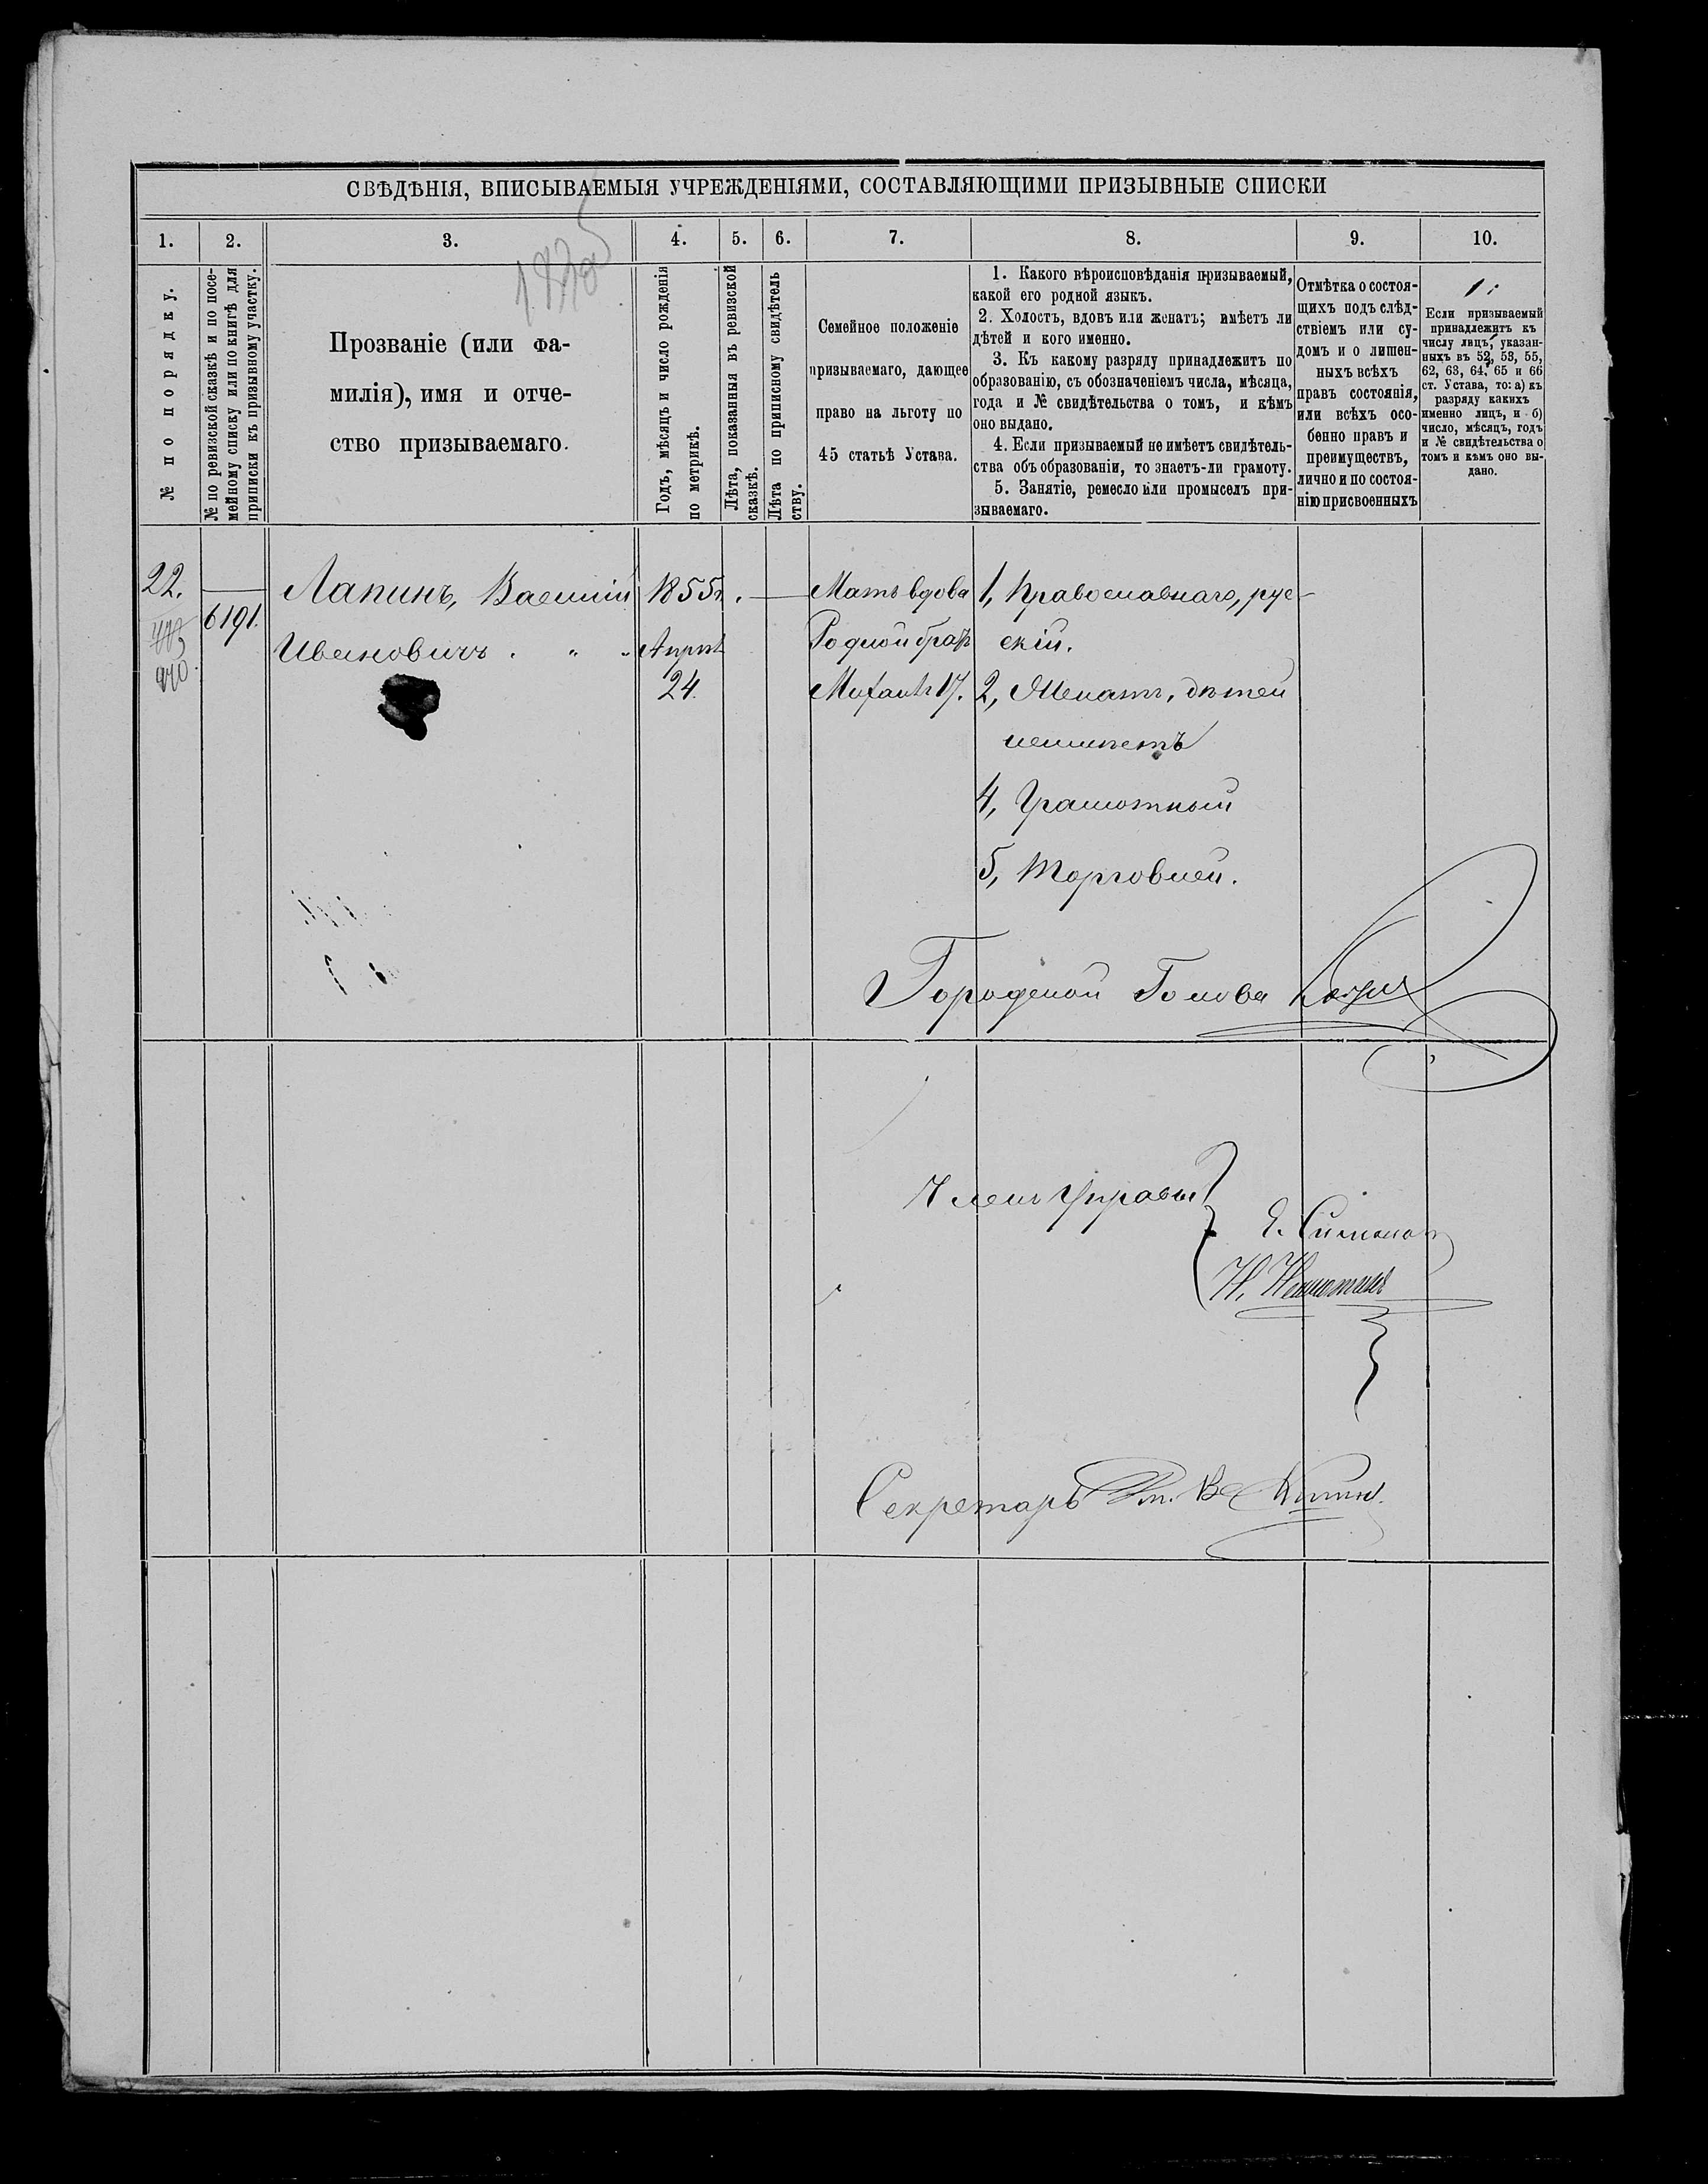 СВѢДѢНІЯ, ВПИСЫВАЕМЫЯ УЧРЕЖДЕНІЯМИ, СОСТАВЛЯЮЩИМИ ПРИЗЫВНЫЕ СПИСКИ
1.
2.
3.
4.
5.
6.
7.
8.
9.
10.
№ по порядку.
№ по ревизской сказкѣ и по посе-
мейному списку или по книгѣ для
приписки къ призывному участку.
Прозваніе (или фа-
милія), имя и отче-
ство призываемаго.
Годъ, мѣсяцъ и число рожденія
по метрикѣ.
Лѣта, показанныя въ ревизской
сказкѣ.
Лѣта по приписному свидѣтель
ству.
Семейное положеніе
призываемаго, дающее
право на льготу по
45 статьѣ Устава.
1. Какого вѣроисповѣданія призываемый,
какой его родной языкъ.
2. Холостъ, вдовъ или женатъ; имѣетъ ли
дѣтей и кого именно.
3. Къ какому разряду принадлежитъ по
образованію, съ обозначеніемъ числа, мѣсяца,
года и № свидѣтельства о томъ, и кѣмъ
оно выдано.
4. Если призываемый не имѣетъ свидѣтель-
ства объ образованіи, то знаетъ-ли грамоту.
5. Занятіе, ремесло или промыселъ при-
зываемаго.
Отмѣтка о состоя-
щихъ подъ слѣд-
ствіемъ или су-
домъ и о лишен-
ныхъ всѣхъ
правъ состоянія,
или всѣхъ осо-
бенно правъ и
преимуществъ,
лично и по состоя-
нію присвоенныхъ
Если призываемый
принадлежитъ къ
числу лицъ, указан-
ныхъ въ 52, 53, 55,
62, 63, 64, 65 и 66
ст. Устава, то: а) къ
разряду какихъ
именно лицъ, и б)
число, мѣсяцъ, годъ
и № свидѣтельства о
томъ и кѣмъ оно вы-
дано.
22.
6191.
Лапинъ, Василій
Ивановичъ . " .
1855г.
Апрѣл
24.
Мать вдова
Родной братъ
Михаилъ 17.
1, Православнаго, рус-
скій.
2, Женатъ, дѣтей
неимѣетъ
4, Грамотный
5, Торговлей.
Городской Голова
Членъ Управы
Секретарь